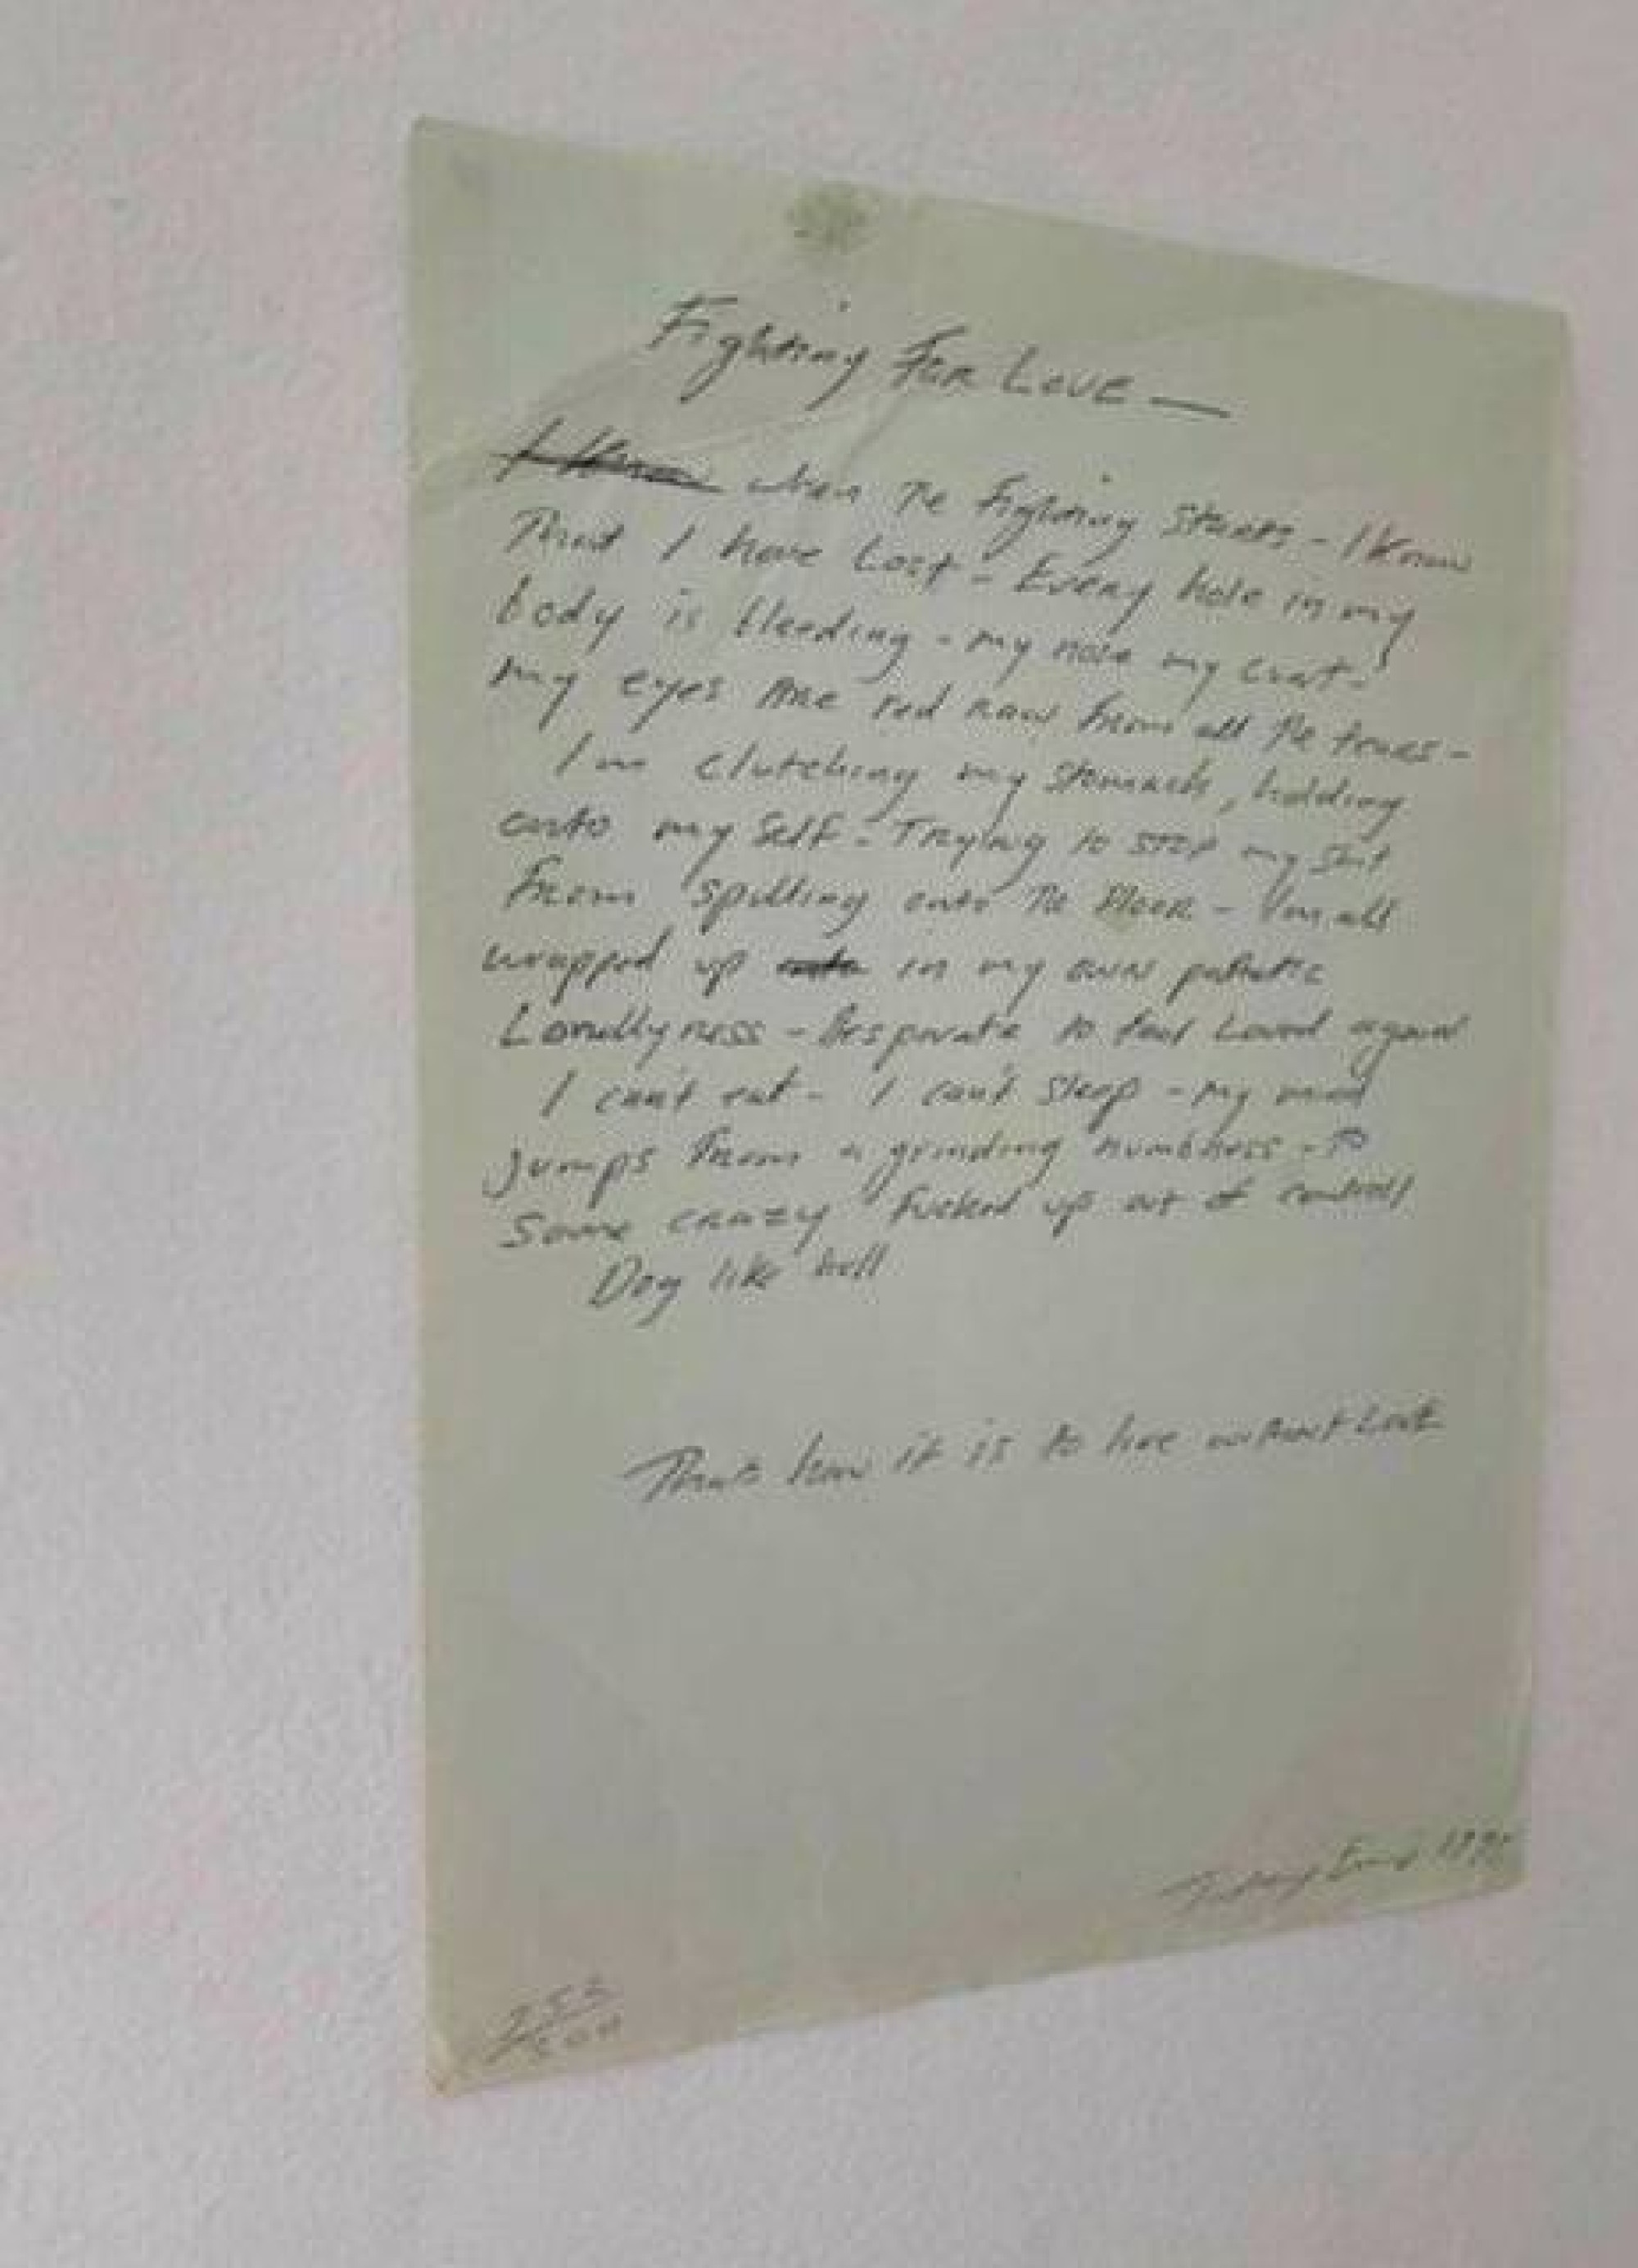 Fighting For Love —
I Know when The Fighting Starts - I Know
That I have Lost - Every hole in my
body is bleeding - my nose my cunt -
My eyes Are red raw From all The tears -
I'm clutching my stomach, holding
onto my Self - Trying to stop my shit
From spilling onto The Floor - I'm all
wrapped up in my own pathetic
Lonellyness - Desperate to feel Loved again
I can't eat - I can't sleep - My mind
jumps From a grinding numbness - To
Some crazy Fucked up out of control
Dog like hell
Thats how it is to live without Love
Tracey Emin 1998
253/500